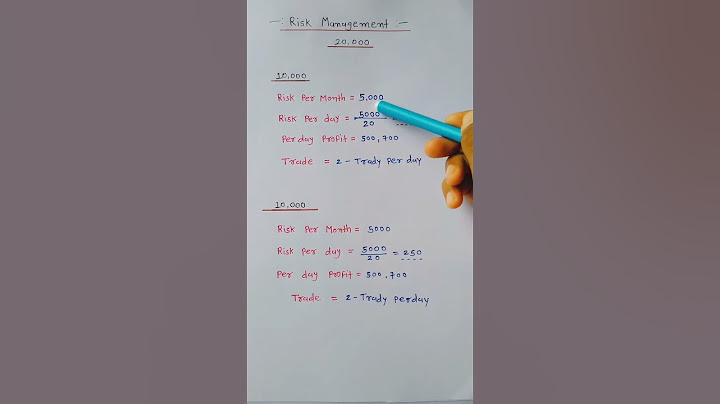 -: Risk Management :-
20,000
10,000
Risk Per Month = 5,000
Risk Per day = 5000/20
Per day Profit = 500,700
Trade = 2 - Trady Per day
10,000
Risk Per Month = 5000
Risk Per day = 5000/20 = 250
Per day Profit = 500,700
Trade = 2 - Trady Perday